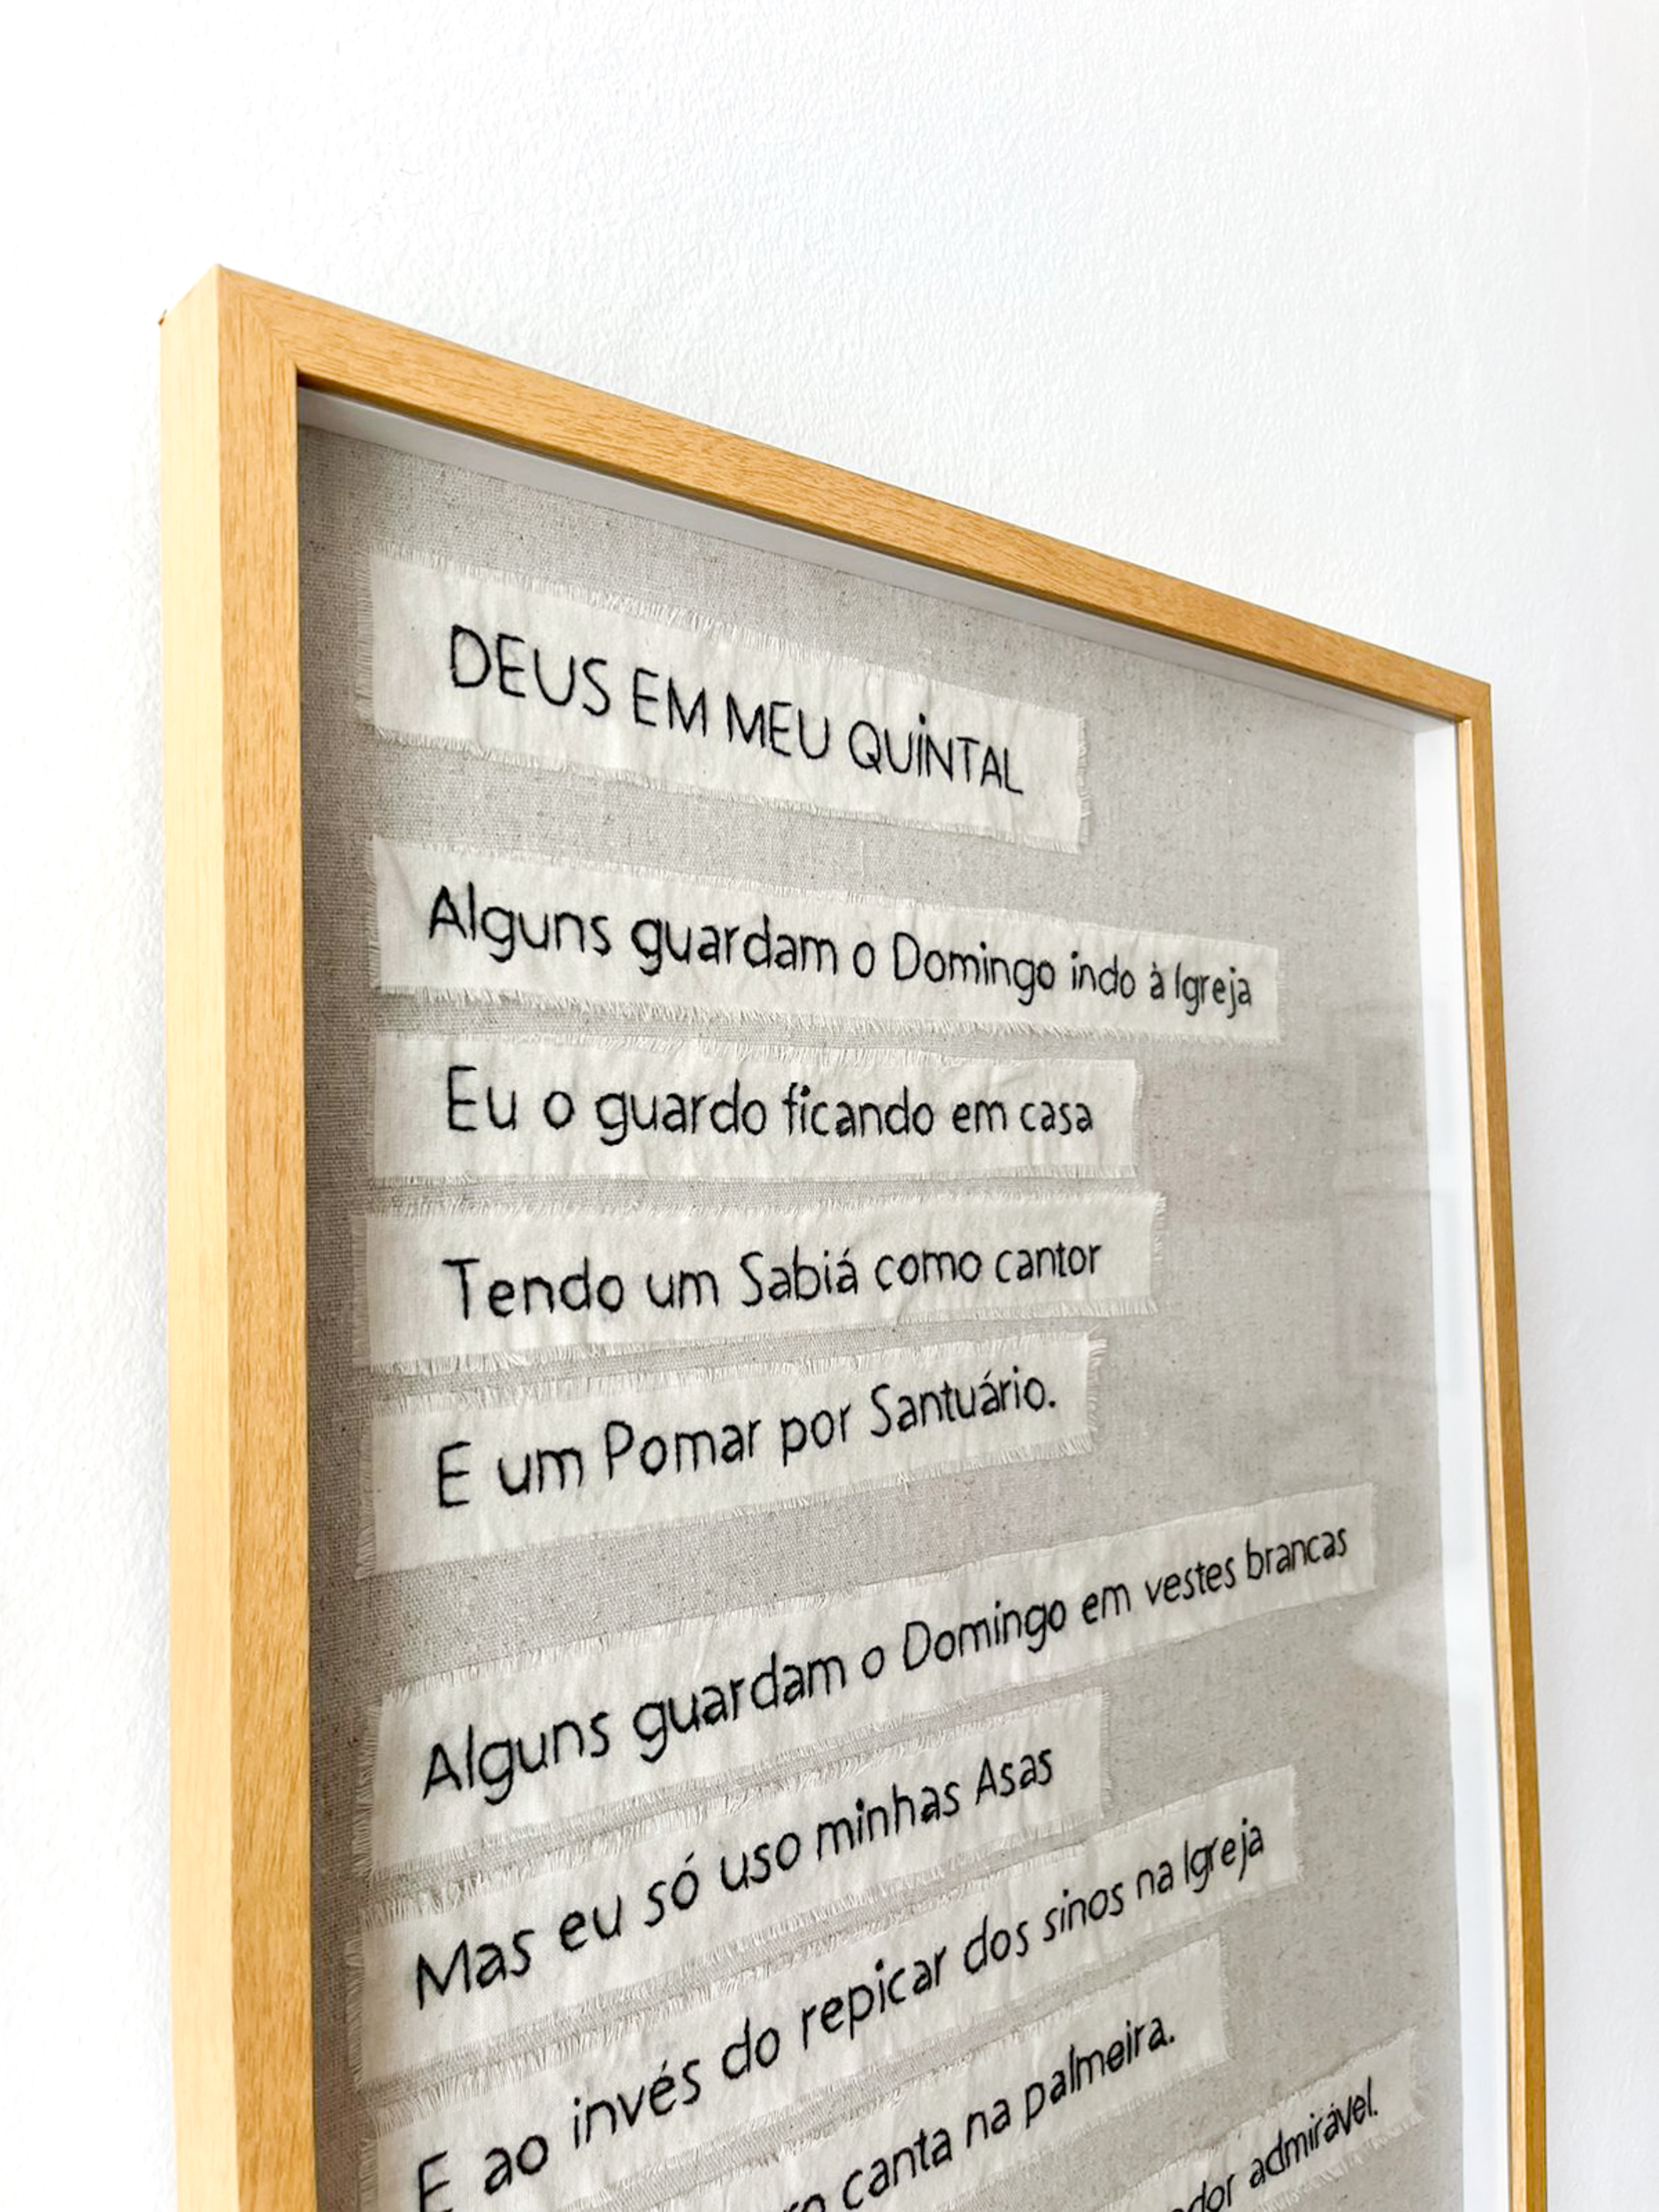 DEUS EM MEU QUINTAL
Alguns guardam o Domingo indo à Igreja
Eu o guardo ficando em casa
Tendo um Sabiá como cantor
E um Pomar por Santuário.
Alguns guardam o Domingo em vestes brancas
Mas eu só uso minhas Asas
E ao invés do repicar dos sinos na Igreja
canta na palmeira.
admirável.